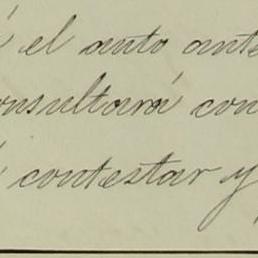 el auto ante
onsultará con
contestar y